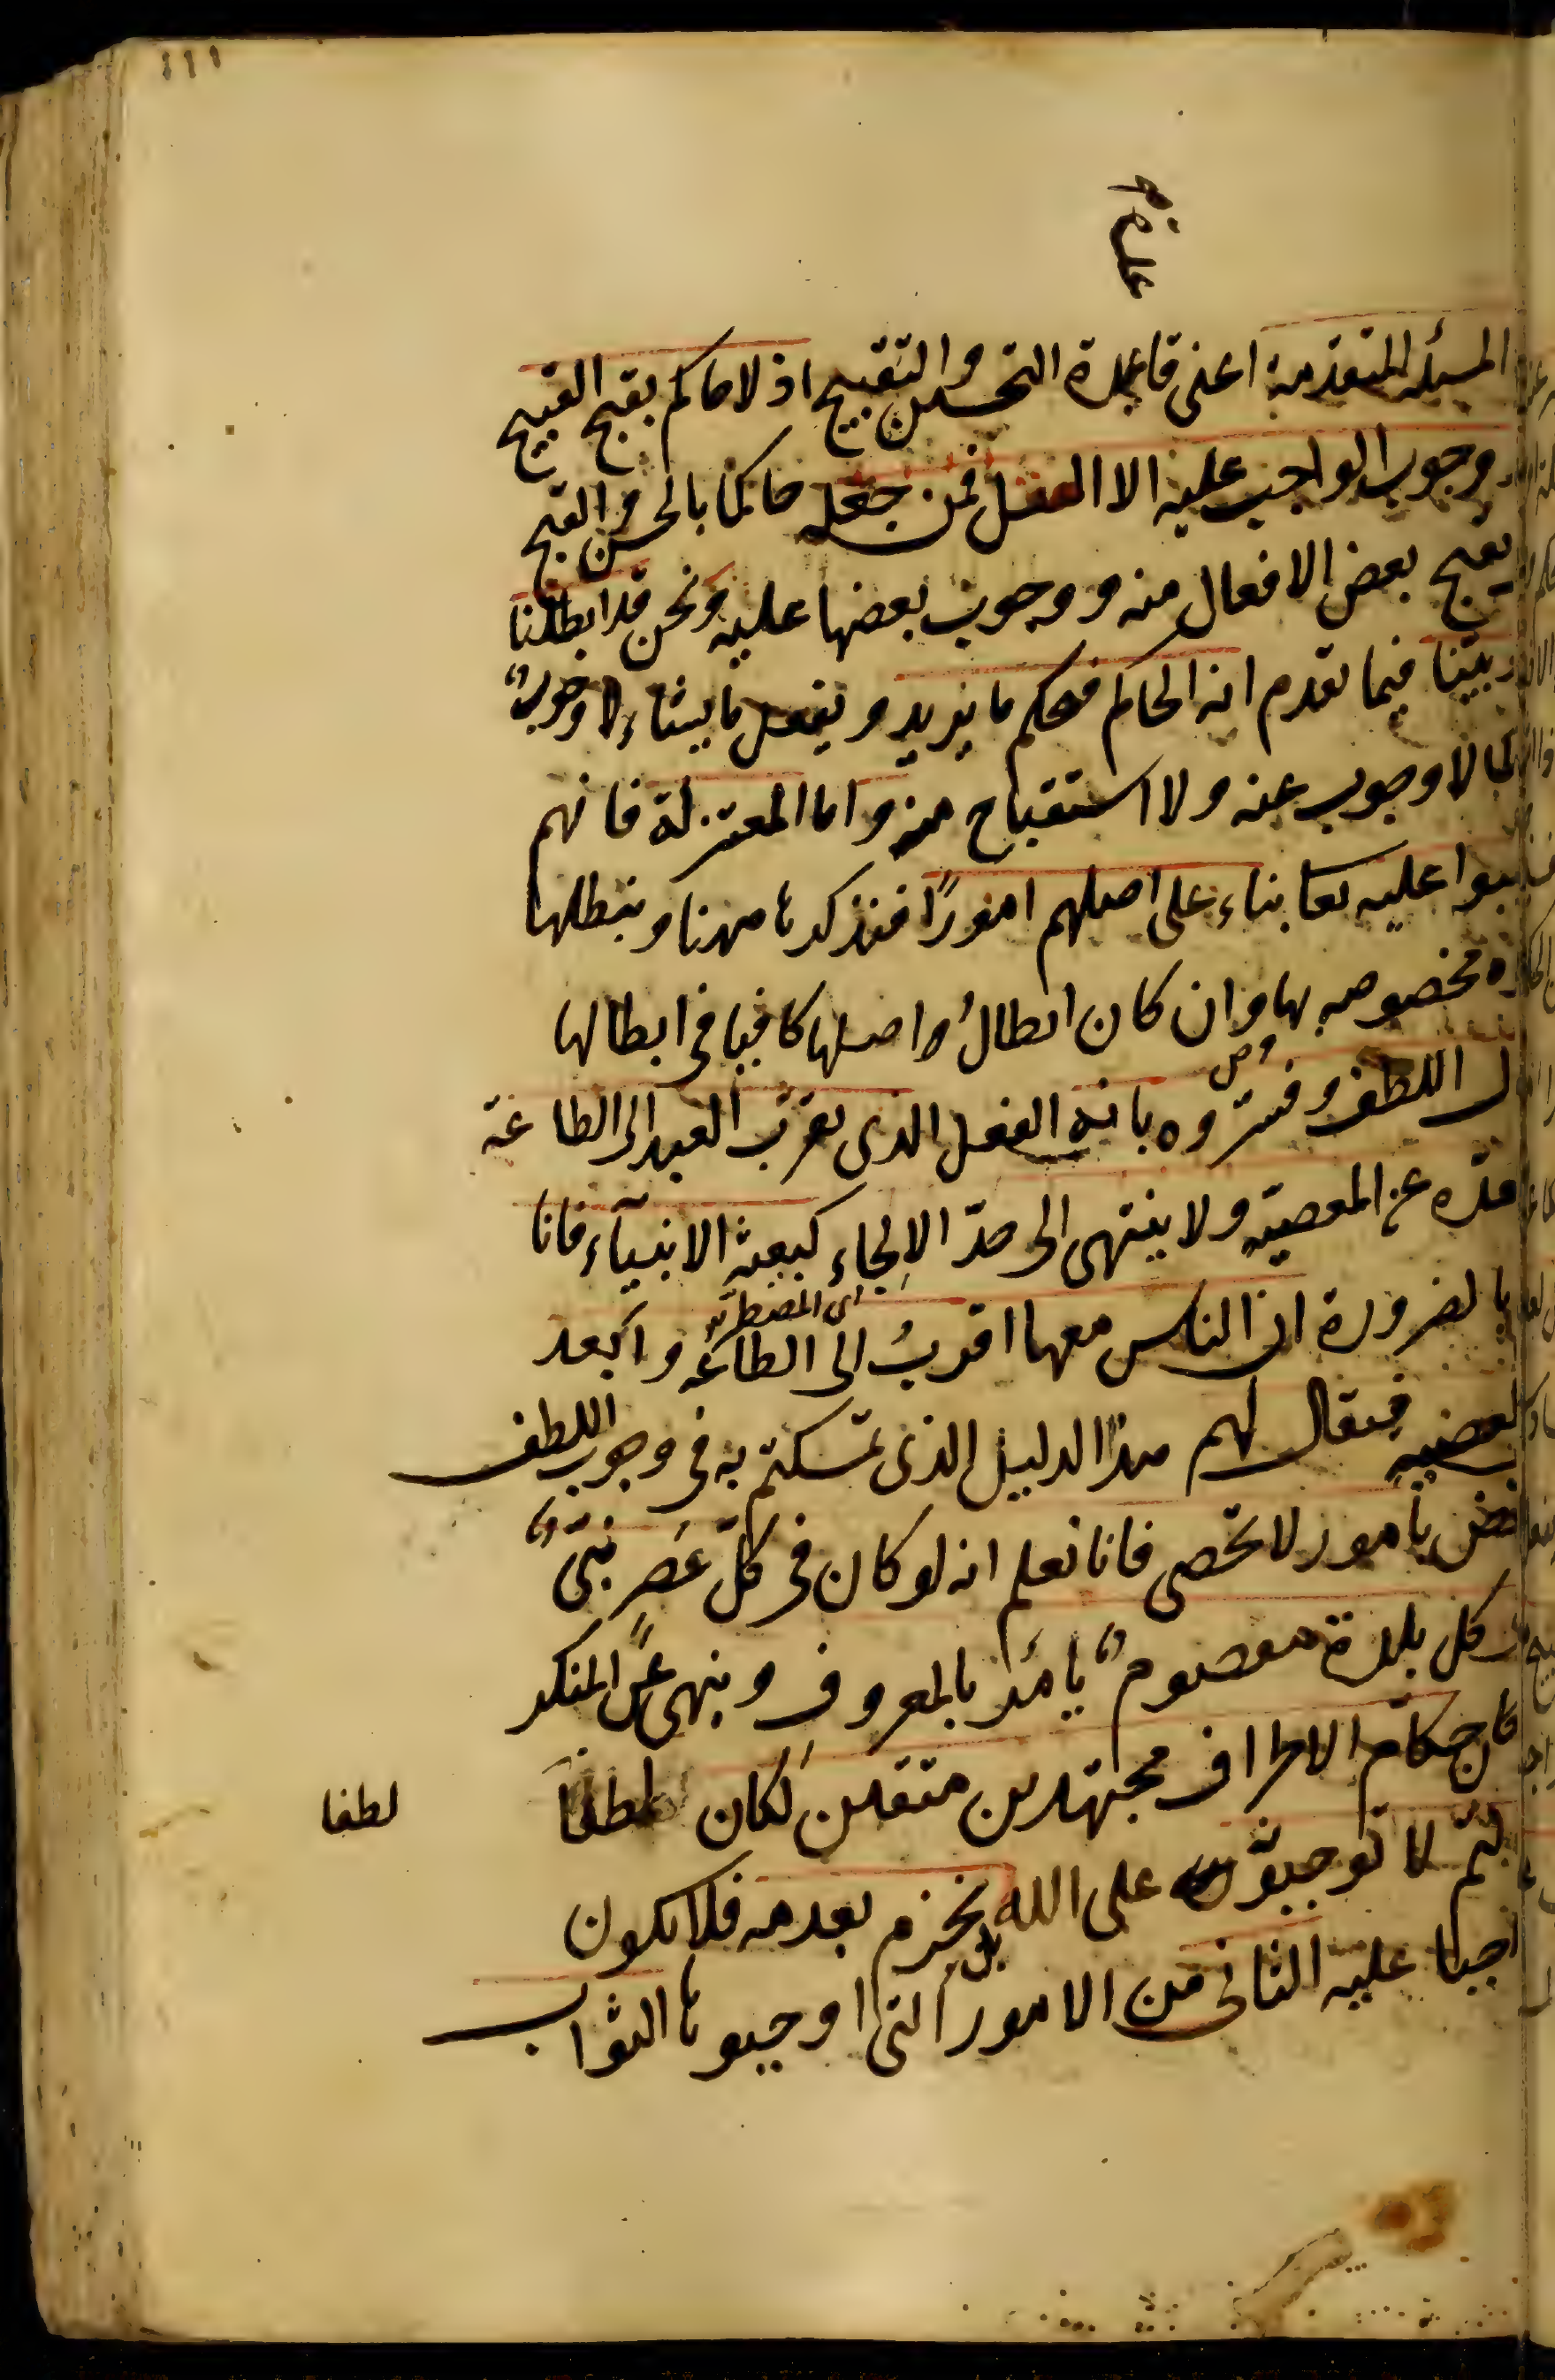 المسئله المتقدمة اعنى قاعدة التحسين والتقبيح اذ لا حاكم بقبح القبيح
ووجوب الواجب عليه الا العقل فمن جعله حاكما بالحسن والقبح
بقبح بعض الافعال منه ووجوب بعضها عليه ونحن قد ابطلنا
وبيّنا فيما تقدم انه الحاكم فيحكم ما يريد ويفعل ما يشاء لا وجوبٌ
لا وجوب عنه ولا استقباح منه واما المعتزلة فانهم
عليه تعا بناء على اصلهم امورًا فنذكرها ههنا ونبطلها
مخصوصه بها وان كان ابطالُ اصلها كافيا فى ابطالها
اللطف وفسّروه بانه الفعل الذى يقرّب العبد الى الطاعة
عن المعصيّه ولا ينتهى الى حدّ الإلجاء كبعثة الانبيآء فانا
بالضرورة ان الناس معها اقربُ الى الطاعه وابعد
اى المضطر
فيقال لهم هذا الدليل الذى تمسكتم به فى وجوب اللطف
بامور لا تحصى فانا نعلم انه لو كان فى كلّ عَصرٍ نبىٌّ
كل بلدة معصومٌ يامُر بالمعروف وينهى عن المنكر
حكام الاطراف مجتهدين متقين لكان لطفا
لطفا
لا توجبونه على الله بل نجزم بعدمه فلا يكون
عليه الثانى من الامور التى اوجبوها الثواب